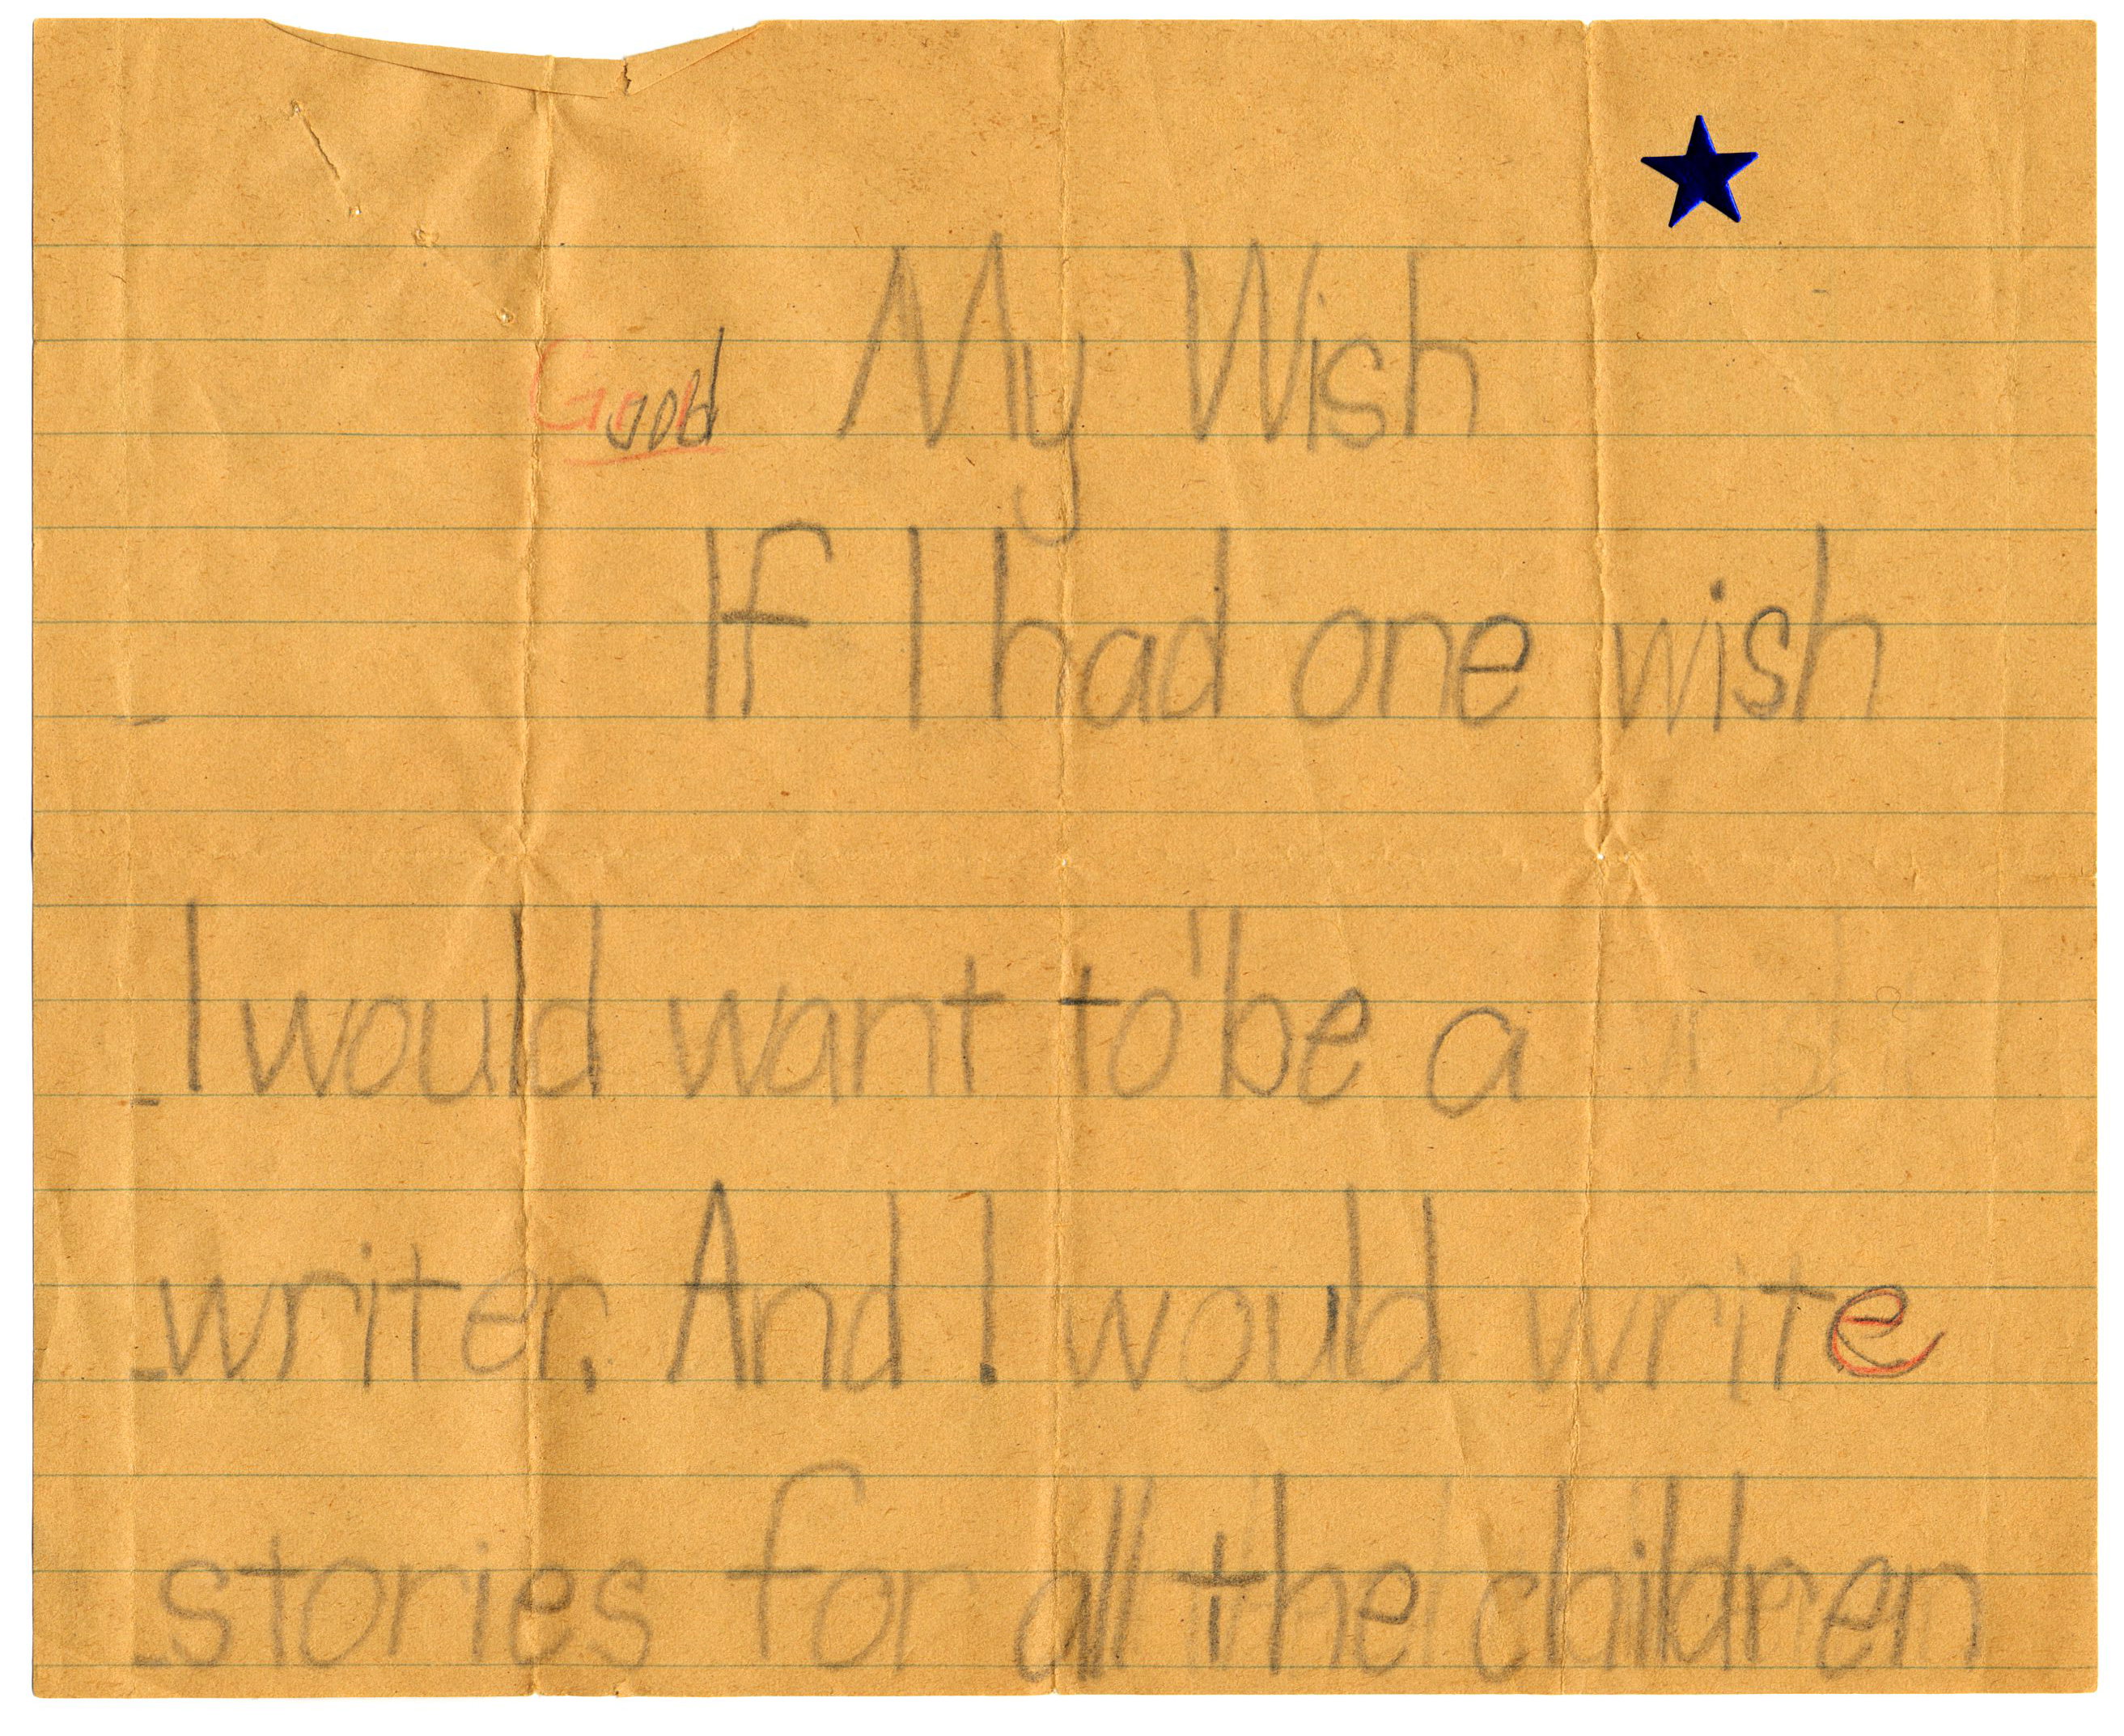 My Wish
Good
If I had one wish
I would want to be a
writer. And I would write
stories for all the children